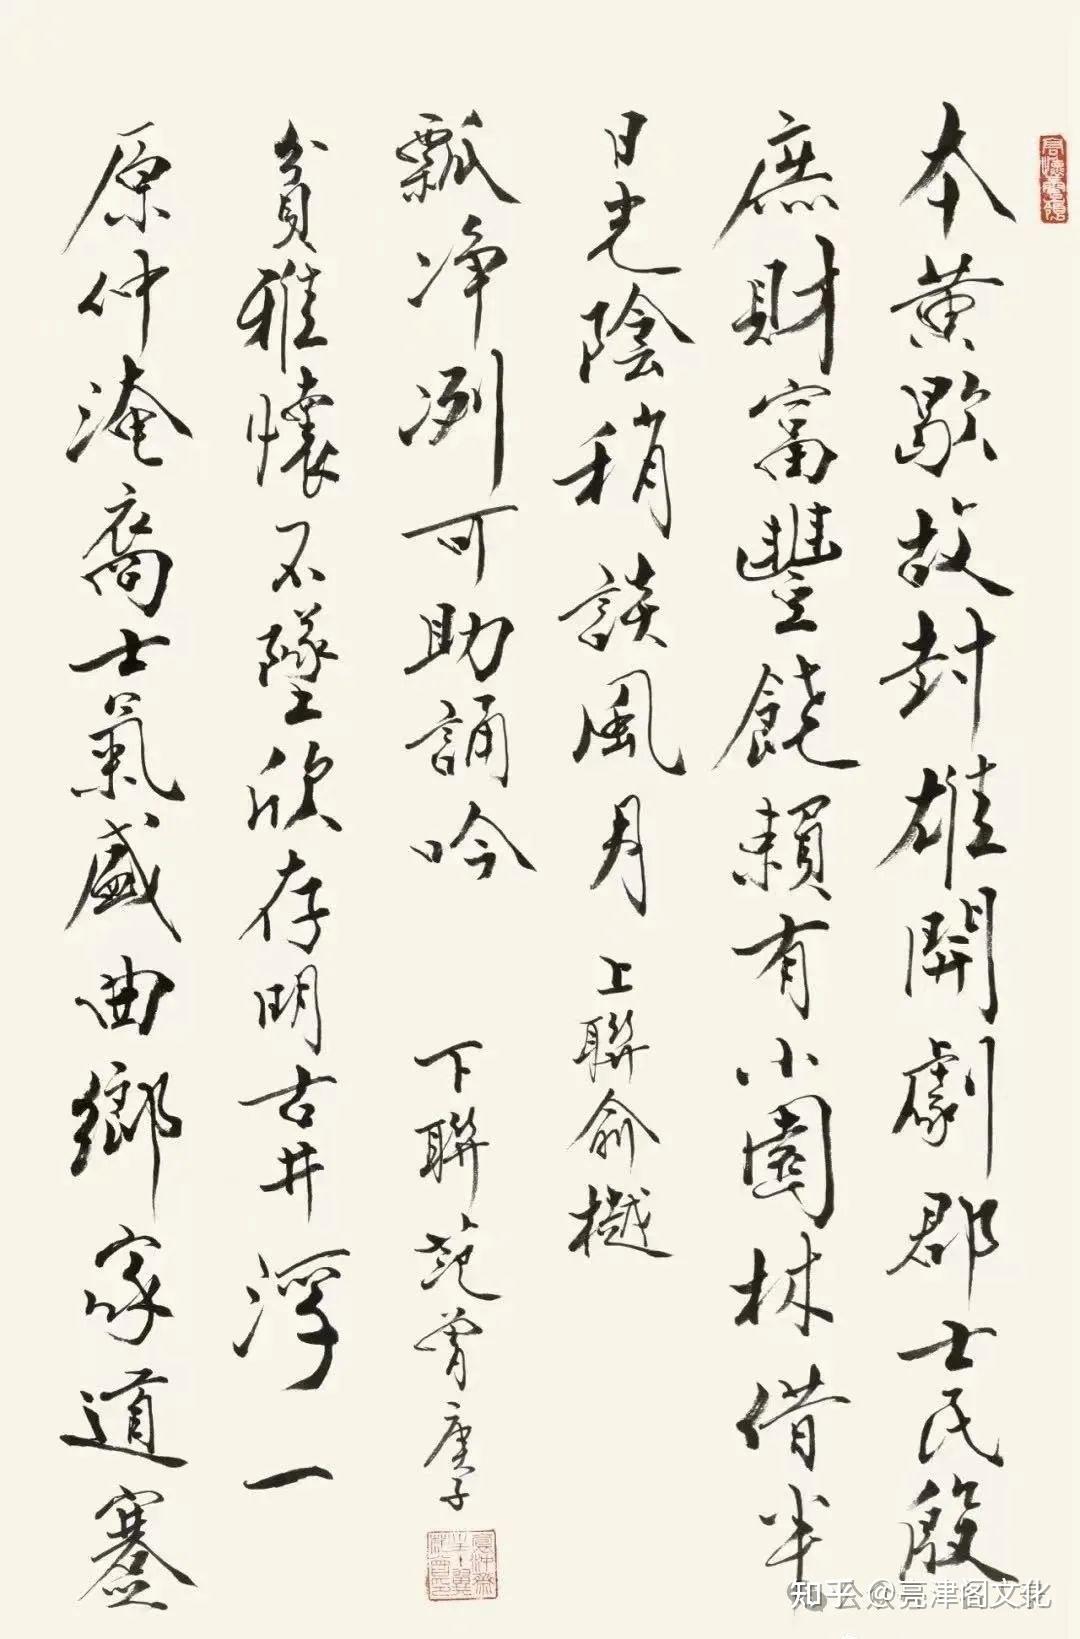 本黄歇故封雄開劇郡士民殷
庶財富豐饒賴有小園林借半
日光陰稍談風月 上聯俞樾
原仲淹裔士氣盛曲鄉家道蹇
貧雅懷不墜欣存明古井浮一
瓢净冽可助誦吟 下聯范曾庚子
知乎 @亮津阁文化